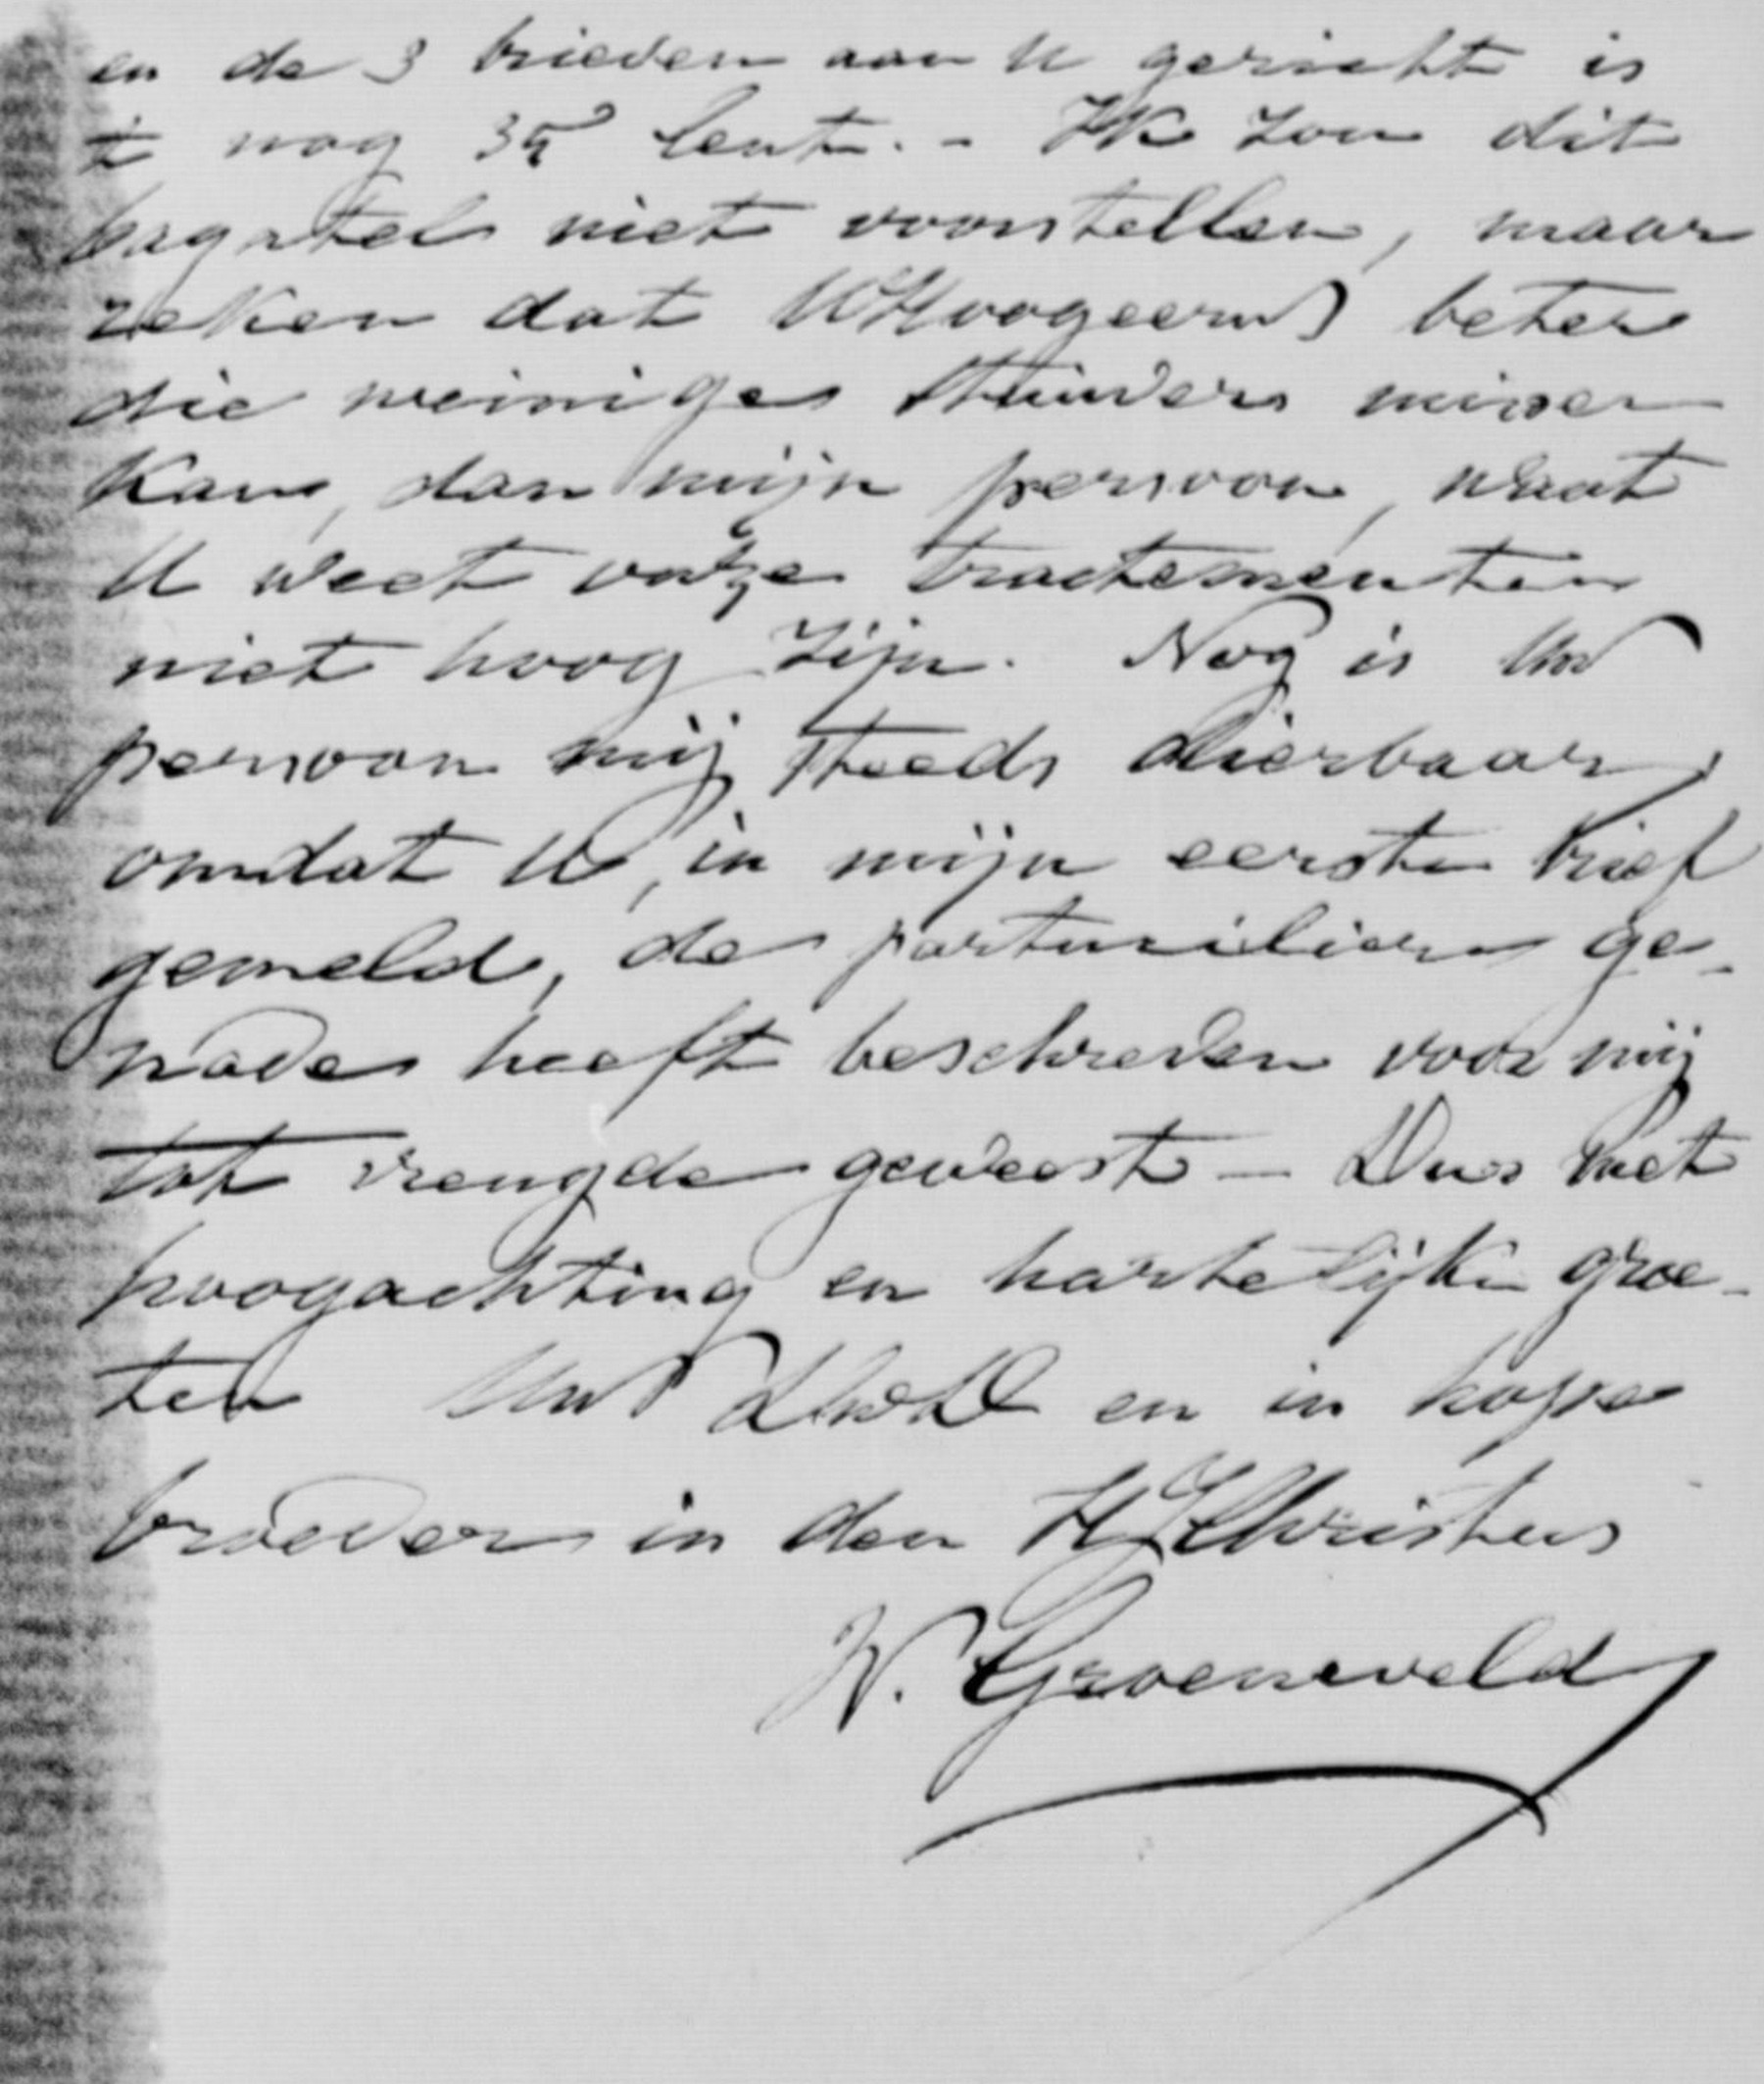 en de 3 brieven aan U gericht is
t nog 35 Cent. - Ik zou dit
bagatel niet voorstellen, maar
reken dat UHoogeerw beter
die weinige stuivers missen
kan, dan mijn persoon, want
U weet onze tractementen
niet hoog zijn. Nog is Uw
persoon mij steeds dierbaar,
omdat U, in mijn eerste brief
gemeld, de particuliere ge-
nade heeft beschreven voor mij
tot vreugde geweest - Dus met
hoogachting en hartelijke groe-
ten Uw DwD en in hope
broeder in den H Christus
W. Groeneveld